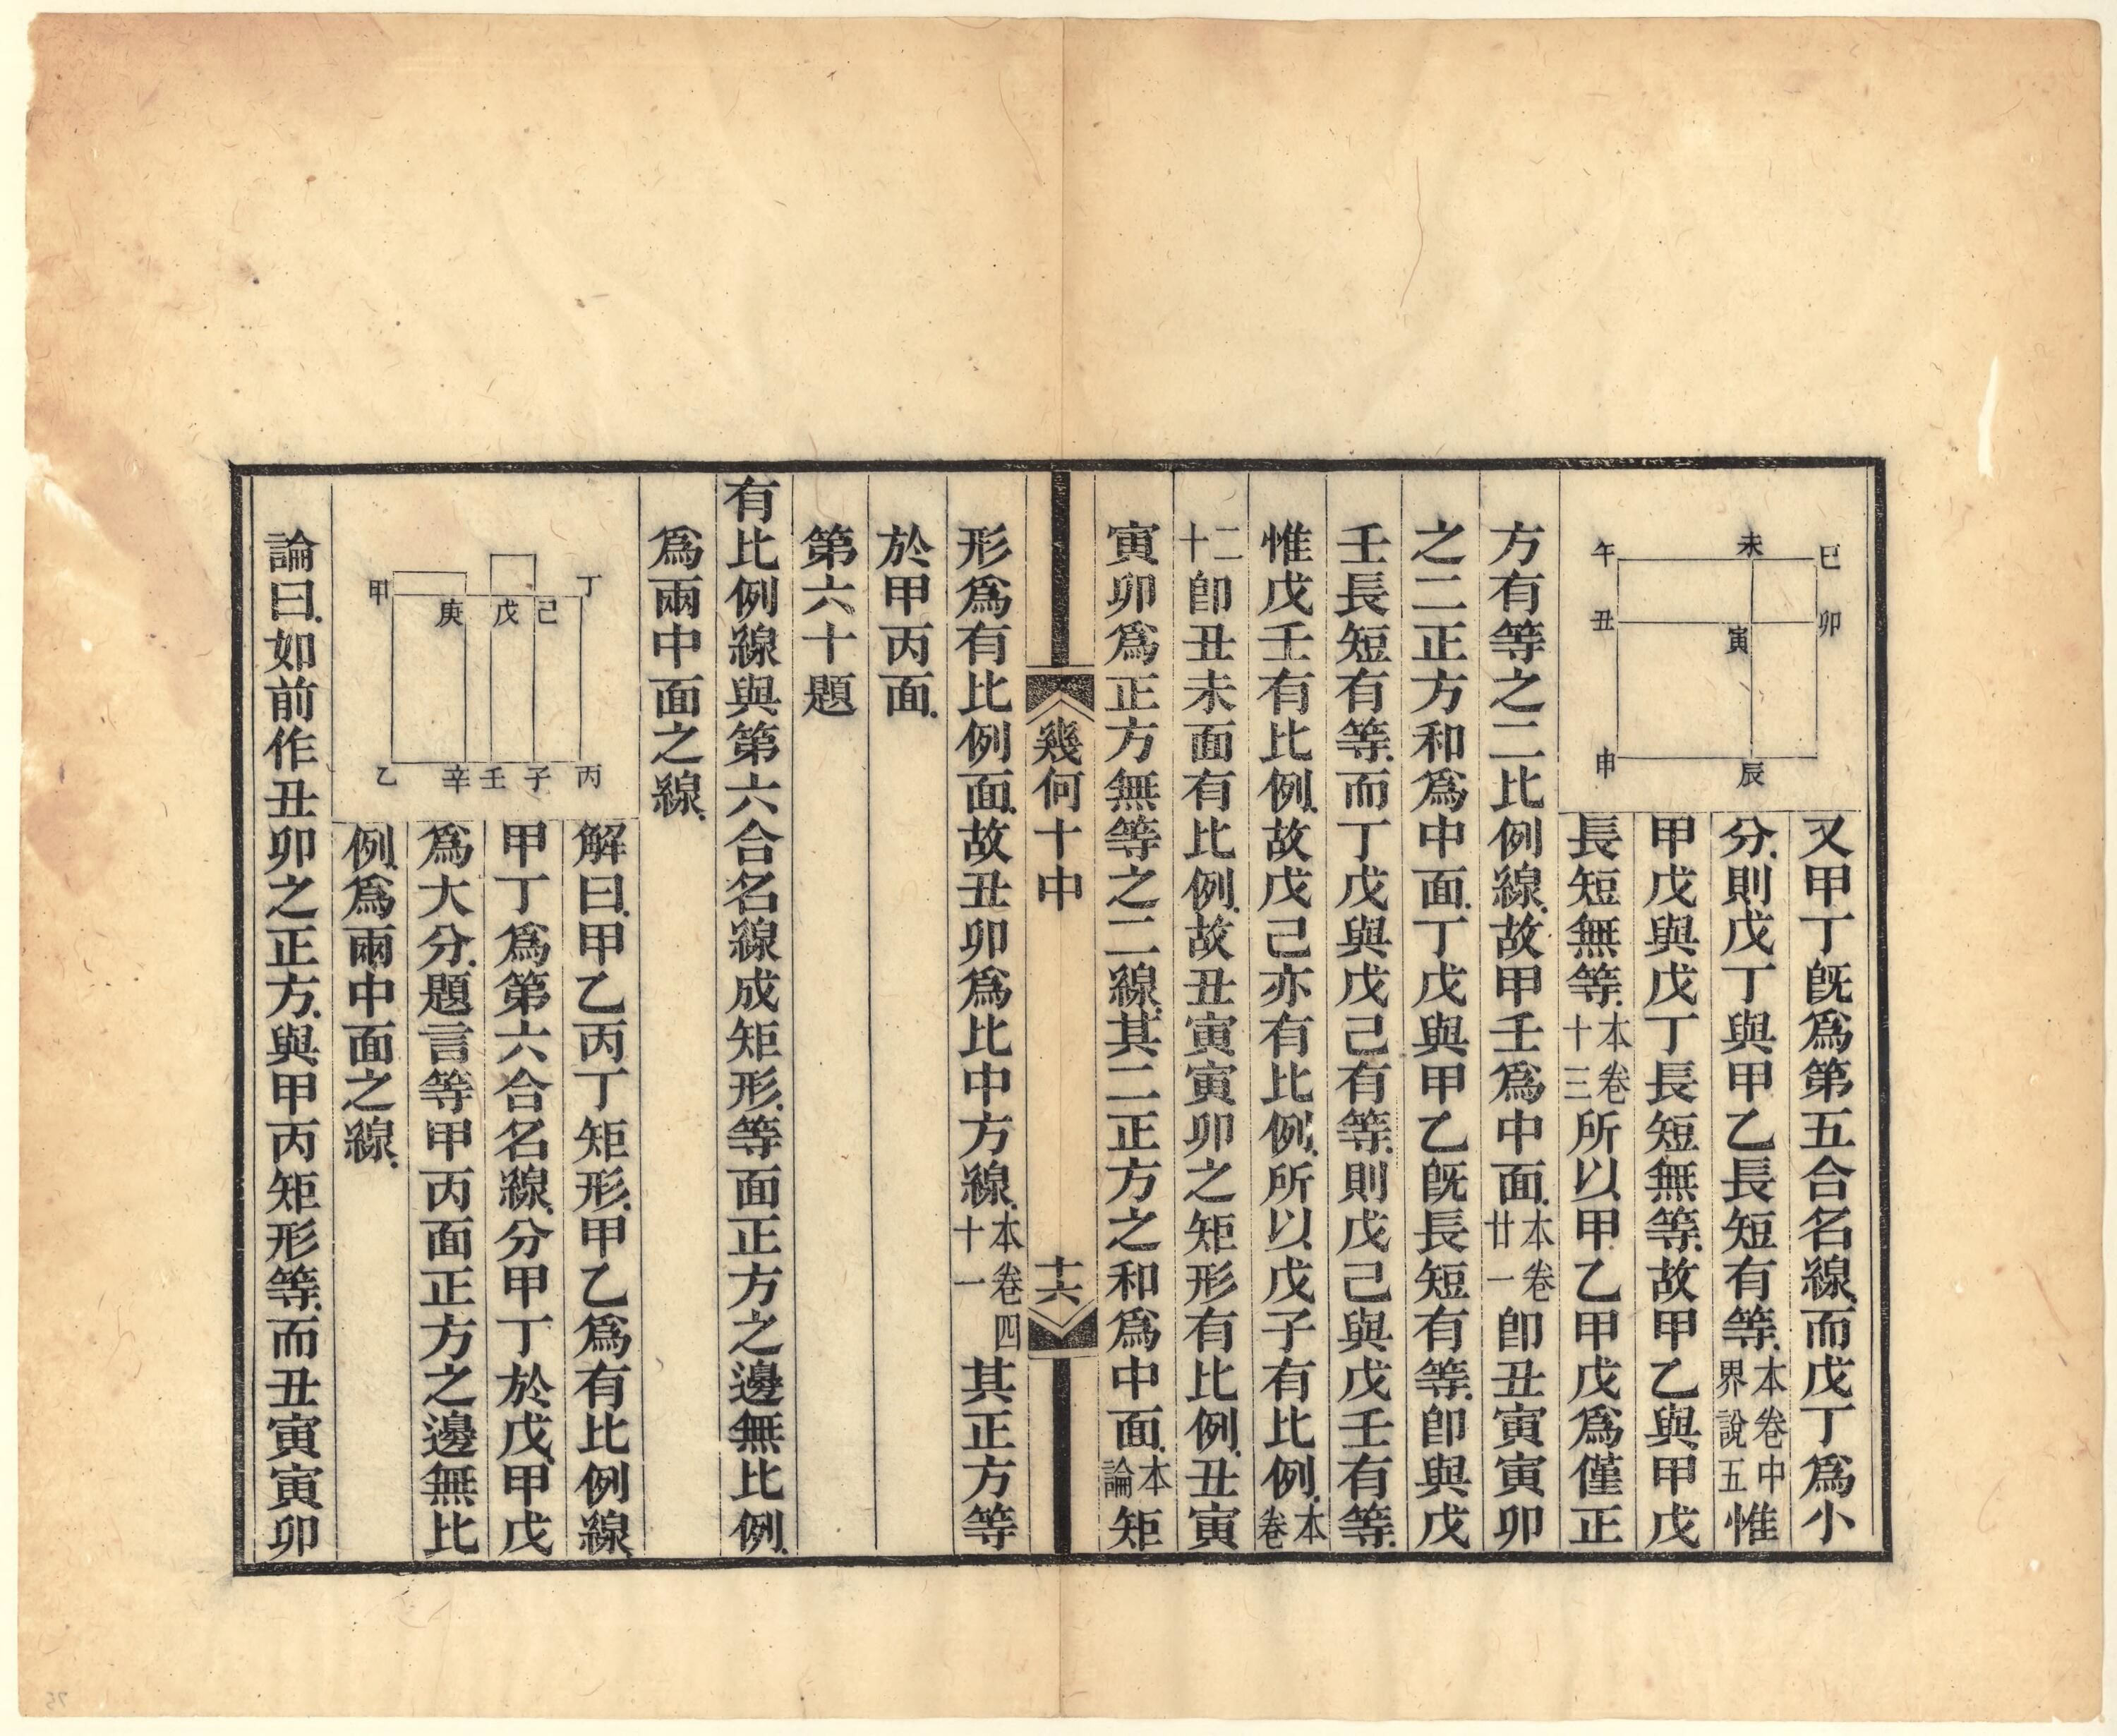 巳
未
午
卯
寅
丑
辰
申
又甲丁旣爲第五合名線而戊丁爲小
分則戊丁與甲乙長短有等本卷中界說五惟
甲戊與戊丁長短無等故甲乙與甲戊
長短無等本卷十三所以甲乙甲戊爲僅正
方有等之二比例線故甲壬爲中面本卷廿一卽丑寅寅卯
之二正方和爲中面丁戊與甲乙旣長短有等卽與戊
壬長短有等而丁戊與戊己有等則戊己與戊壬有等
惟戊壬有比例故戊己亦有比例所以戊子有比例本卷
十二卽丑未面有比例故丑寅寅卯之矩形有比例丑寅
寅卯爲正方無等之二線其二正方之和爲中面本論矩
幾何十中
十六
形爲有比例面故丑卯爲比中方線本卷四十一其正方等
於甲丙面
第六十題
有比例線與第六合名線成矩形等面正方之邊無比例
爲兩中面之線
丁
己
戊
庚
甲
丙
子
壬
辛
乙
解曰甲乙丙丁矩形甲乙爲有比例線
甲丁爲第六合名線分甲丁於戊甲戊
爲大分題言等甲丙面正方之邊無比
例爲兩中面之線
論曰如前作丑卯之正方與甲丙矩形等而丑寅寅卯